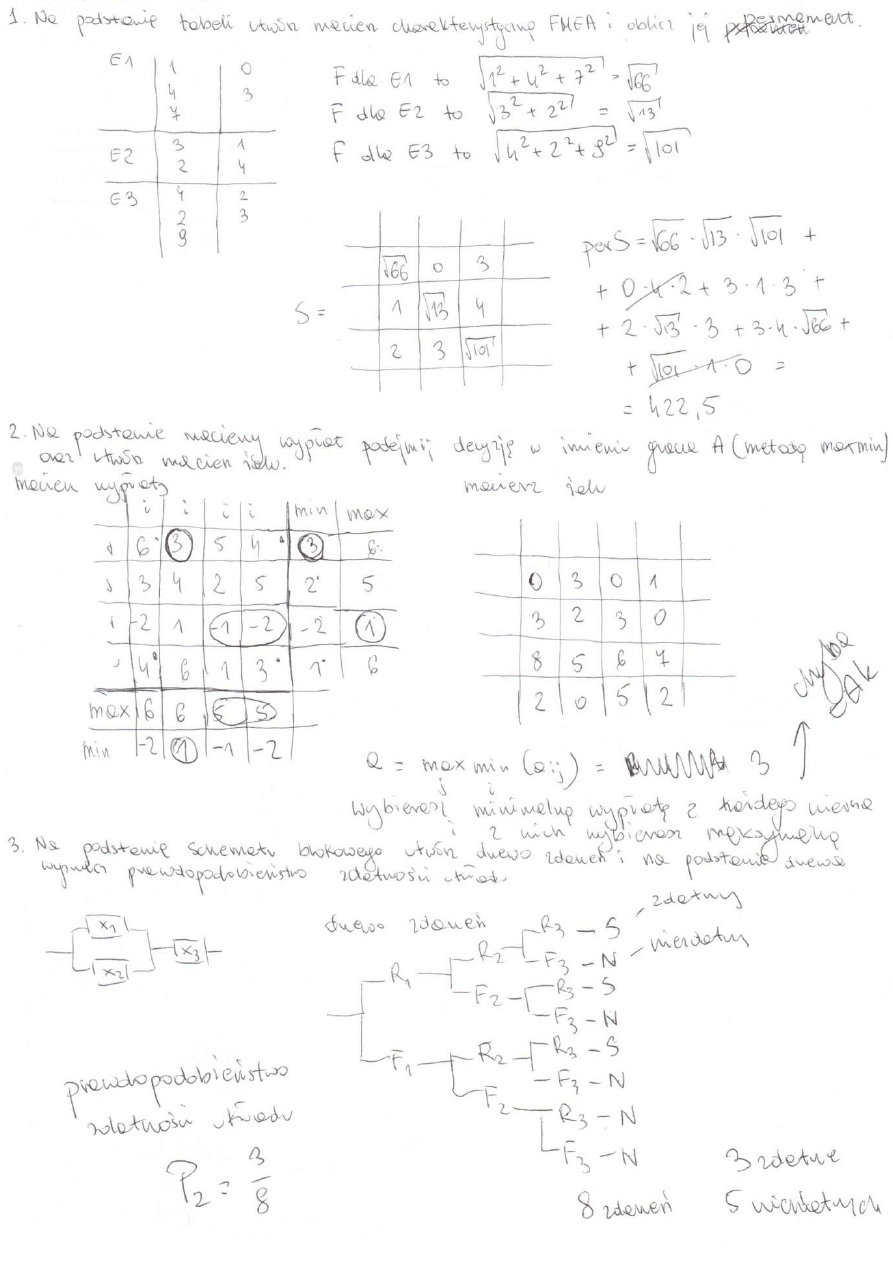 1. Na podstawie tabeli utwórz macierz charakterystyczną FMEA i oblicz jej permament.
E1 1 0
4 3
7
E2 3 1
2 4
E3 4 2
2 3
9
F dla E1 to √1²+4²+7² = √66
F dla E2 to √3²+2² = √13
F dla E3 to √4²+2²+9² = √101
S =
√66 0 3
1 √13 4
2 3 √101
perS = √66 · √13 · √101 +
+ 0·4·2 + 3·1·3 +
+ 2·√13·3 + 3·4·√66 +
+ √101·1·0 =
= 422,5
2. Na podstawie macierzy wypłat podejmij decyzję w imieniu gracza A (metodą maxmin)
oraz utwórz macierz żalu.
macierz wypłaty
i i i i min max
6 3 5 4 3 6
3 4 2 5 2 5
-2 1 -1 -2 -2 1
4 6 1 3 1 6
max 6 6 5 5
min -2 1 -1 -2
macierz żalu
0 3 0 1
3 2 3 0
8 5 6 7
2 0 5 2
chyba
tak
Q = max min (aij) = 3
j i
wybierasz minimalną wypłatę z każdego wiersza
i z nich wybierasz maksymalną
3. Na podstawie schematu blokowego utwórz drzewo zdarzeń i na podstawie drzewa
wyznacz prawdopodobieństwo zdatności układu
x1
x2
x3
drzewo zdarzeń
zdatny
niezdatny
R1
R2
R3 – S
F3 – N
F2
R3 – S
F3 – N
F1
R2
R3 – S
F3 – N
F2
R3 – N
F3 – N
prawdopodobieństwo
zdatności układu
Pz = 3/8
8 zdarzeń
3 zdatne
5 niezdatnych